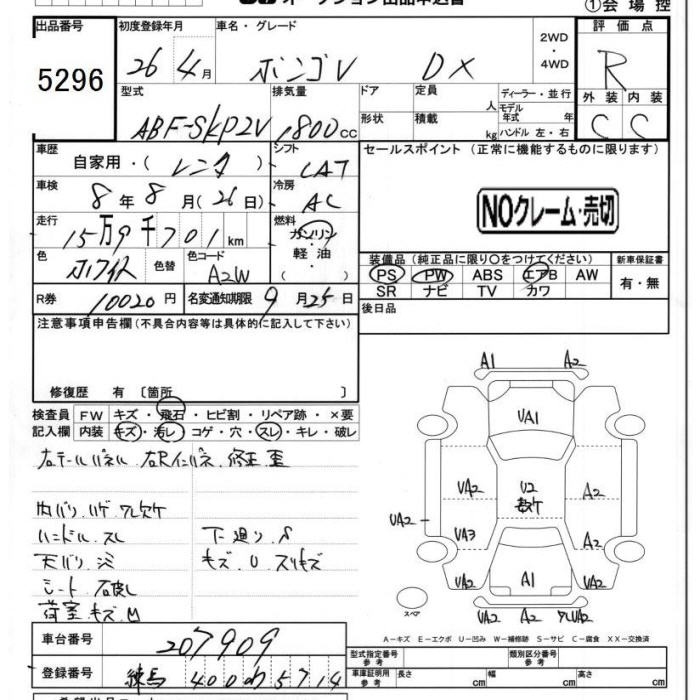 オークション出品申込書
①会場控
出品番号 初度登録年月 車名・グレード 2WD・4WD 評価点
5296 26年4月 ボンゴV DX R
型式 排気量 ドア 定員 人 ディーラー・並行 外装 内装
ABF-SKP2V 1,800cc 形状 積載 kg モデル年式 年 ハンドル 左・右 C C
車歴 自家用・(レンタ) シフト CAT セールスポイント (正常に機能するものに限ります)
車検 8年8月(26日) 冷房 AC
NOクレーム・売切
走行 15万9千701km 燃料 ガソリン・軽油・( )
色 ホワイト 色替 色コード A2W
装備品(純正品に限り○をつけてください) 新車保証書
PS PW ABS エアB AW 有・無
SR ナビ TV カワ
R券 10020円 名変通知期限 9月25日
後日品
注意事項申告欄(不具合内容等は具体的に記入して下さい)
修復歴 有 〔箇所 〕
検査員 FW キズ・飛石・ヒビ割・リペア跡・×要
記入欄 内装 キズ・汚レ・コゲ・穴・スレ・キレ・破レ
右テールパネル.右Rインパネ.修正.歪
内バリ.ハゲ.ワレ欠ケ
ハンドル.スレ 下廻り.S
天バリ.シミ キズ.U.スリキズ
シート.破レ
荷室.キズ.M
A1 A2
UA1
UA2 U2 数ケ A2
UA2
UA3 A2
UA2 A1 UA2
スペア
UA2 A2 ワレUA2
A-キズ E-エクボ U-凹み W-補修跡 S-サビ C-腐食 XX-交換済
車台番号 207909
型式指定番号 参考 類別区分番号 参考
登録番号 練馬 400 わ 5714
車庫証明用 参考 長さ cm 幅 cm 高さ cm